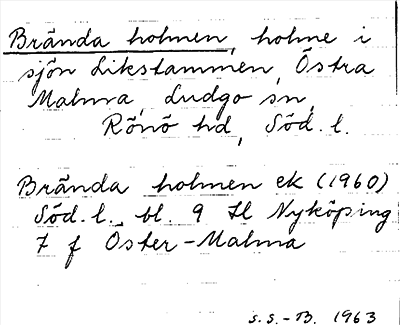 Brända holmen, holme i
sjön Likstammen, Östra
Malma, Ludgo sn,
Rönö hd, Söd. l.
Brända holmen ek (1960)
Söd. l. bl. 9 H Nyköping
7 f Öster-Malma
S.S.-B. 1963